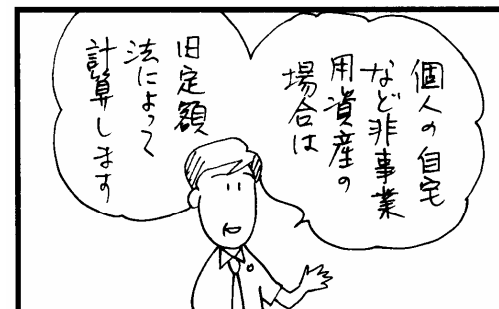 個人の自宅
など非事業
用資産の
場合は
旧定額
法によって
計算します